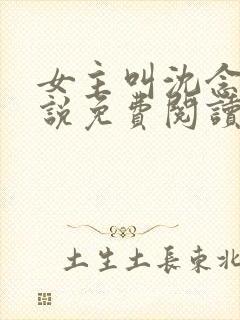 女主叫沈念
說免費閱讀
土生土長東北